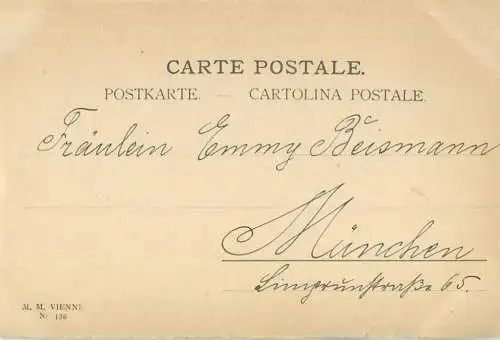 CARTE POSTALE.
POSTKARTE. — CARTOLINA POSTALE.
Fräulein Emmy Beismann
München
65.
M. M. VIENNE
Nr. 136